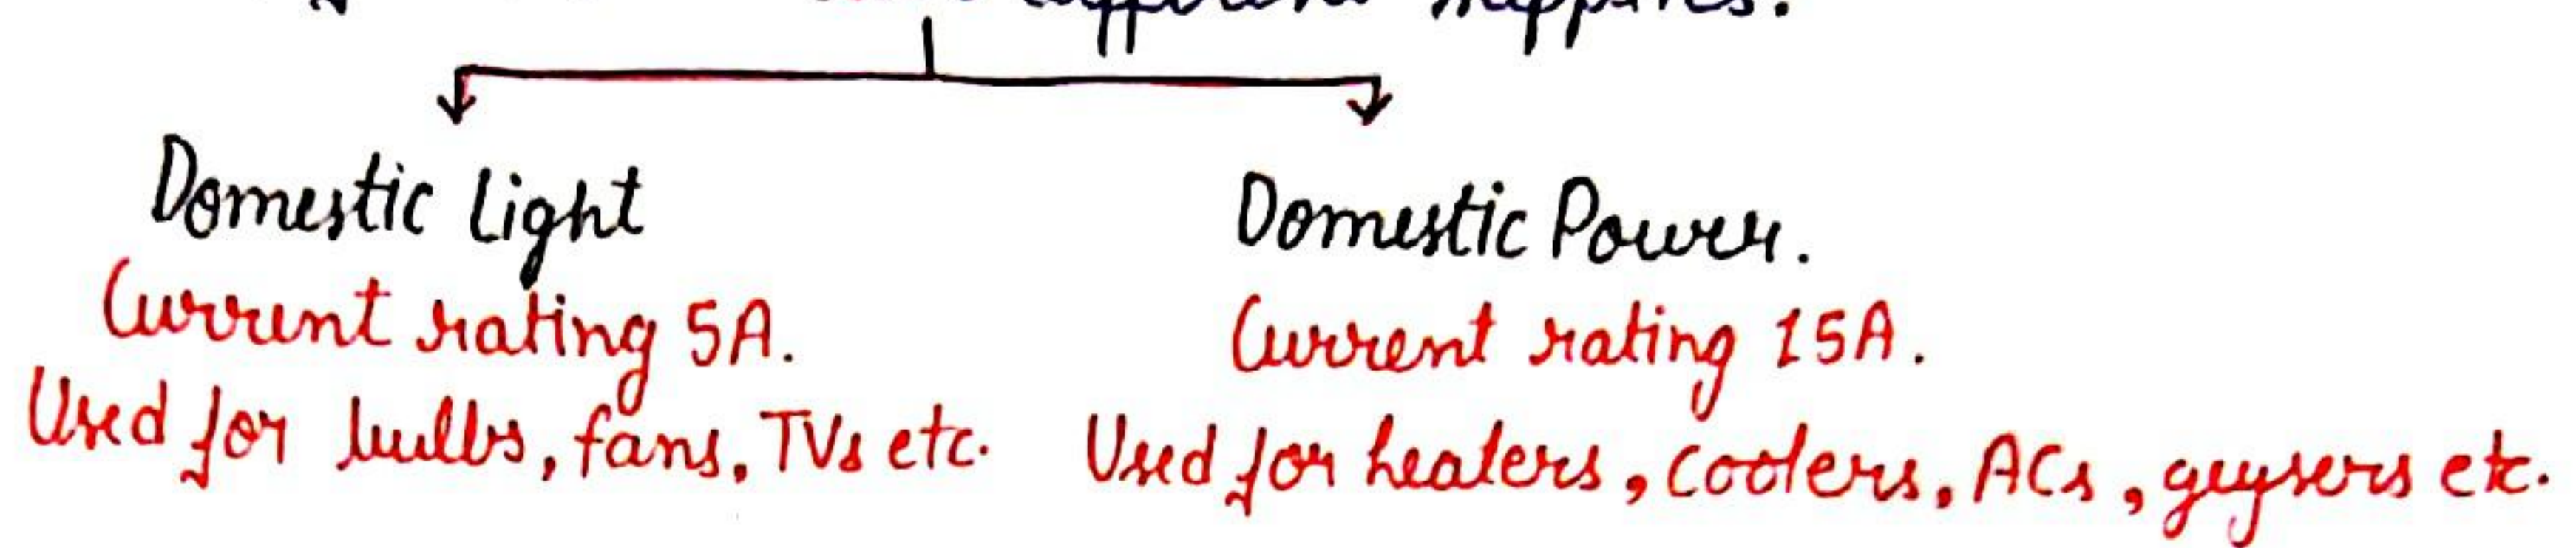 different supplies.
Domestic Light
Current rating 5A.
Used for bulbs, fans, TVs etc.
Domestic Power.
Current rating 15A.
Used for heaters, coolers, ACs, geysers etc.